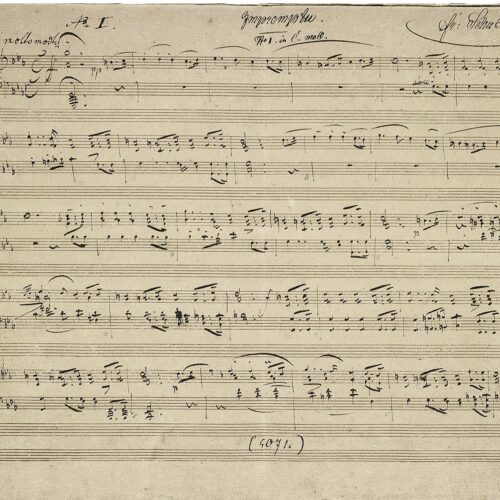 No I.
Impromptu.
No 1. in C moll.
Fr: Schub
molto mod
pp
(5071.)